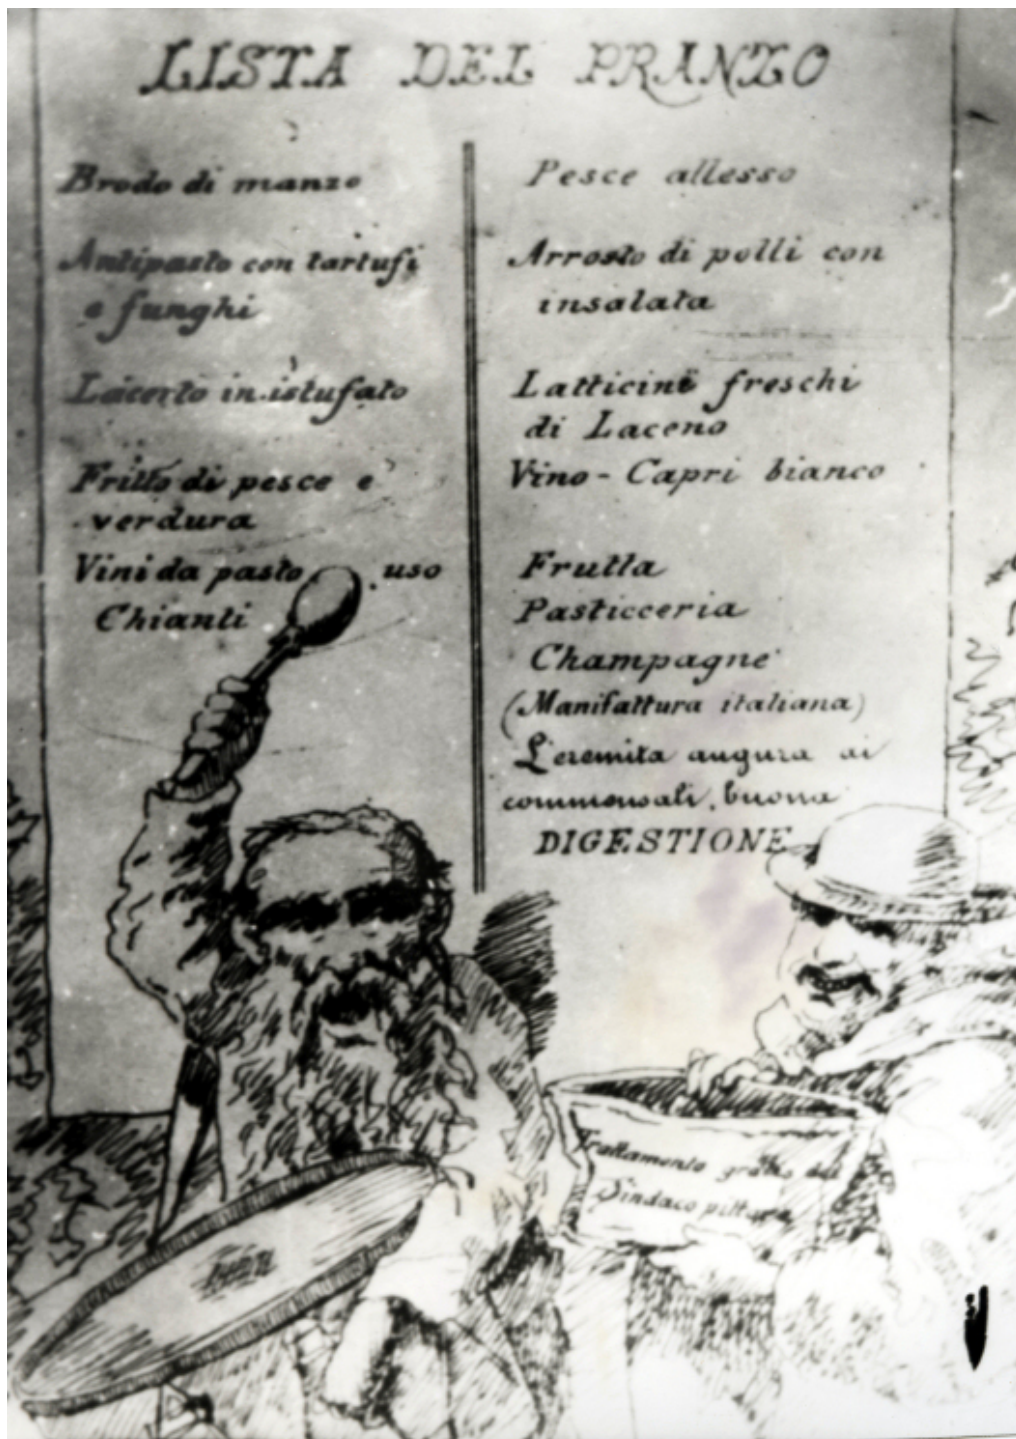 LISTA DEL PRANZO
Brodo di manzo
Antipasto con tartufi
e funghi
Lacerto in istufato
Fritto di pesce e
verdura
Vini da pasto uso
Chianti
Pesce allesso
Arrosto di polli con
insalata
Latticini freschi
di Laceno
Vino - Capri bianco
Frutta
Pasticceria
Champagne
(Manifattura italiana)
L'eremita augura ai
commensali, buona
DIGESTIONE
Trattamento gratis del
Sindaco